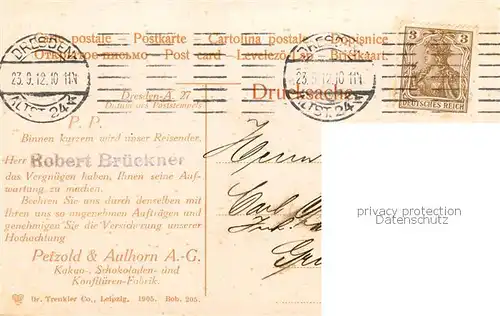 Carte postale - Postkarte - Cartolina postale - Dopisnice
Открытое письмо - Post card - Levelező-Lap - Briefkaart.
DRESDEN
23.9.12.10-11N
ALTST. 24
DRESDEN
ALTST. 24
3 3
DEUTSCHES REICH
Dresden-A. 27
Datum des Poststempels
Drucksache
P. P.
Binnen kurzem wird unser Reisender,
Herr Robert Brückner
das Vergnügen haben, Ihnen seine Auf-
wartung zu machen.
Beehren Sie uns durch denselben mit
Ihren uns so angenehmen Aufträgen und
genehmigen Sie die Versicherung unserer
Hochachtung
Petzold & Aulhorn A.-G.
Kakao-, Schokoladen- und
Konfitüren-Fabrik.
Dr. Trenkler Co., Leipzig. 1905. Bob. 205.
Herrn
Carl
privacy protection
Datenschutz